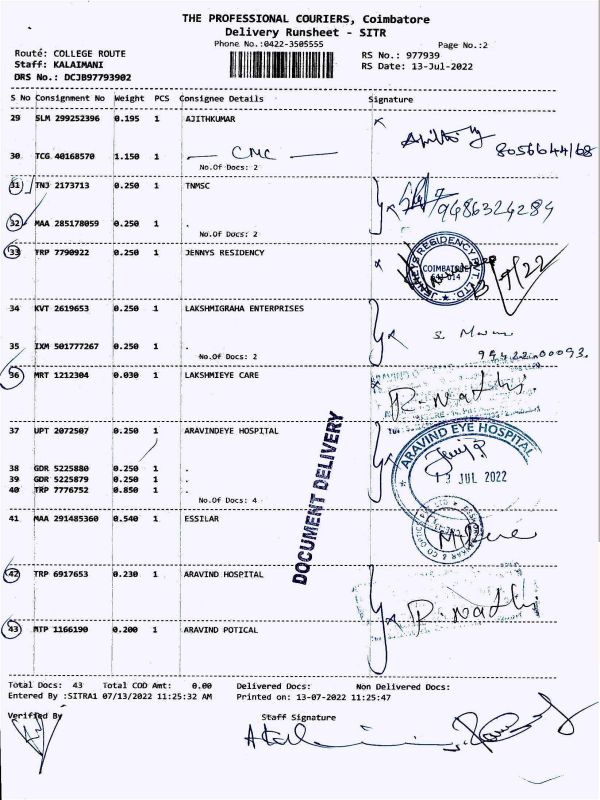 THE PROFESSIONAL COURIERS, Coimbatore
Delivery Runsheet - SITR
Phone No.:0422-3505555
Page No.:2
Route: COLLEGE ROUTE
RS No.: 977939
Staff: KALAIMANI
RS Date: 13-Jul-2022
DRS No.: DCJB97793902
S No Consignment No Weight PCS Consignee Details Signature
29 SLM 299252396 0.195 1 AJITHKUMAR
8056644168
30 TCG 40168570 1.150 1 CMC
No.Of Docs: 2
31 TNJ 2173713 0.250 1 TNMSC
9486324284
32 MAA 285178059 0.250 1 .
No.Of Docs: 2
33 TRP 7790922 0.250 1 JENNYS RESIDENCY
JENNEYS RESIDENCY PVT. LTD.
COIMBATORE
641 014
34 KVT 2619653 0.250 1 LAKSHMIGRAHA ENTERPRISES
35 IXM 501777267 0.250 1 .
94422 00093.
No.Of Docs: 2
36 MRT 1212304 0.030 1 LAKSHMIEYE CARE
R. Nathi.
37 UPT 2072507 0.250 1 ARAVINDEYE HOSPITAL
ARAVIND EYE HOSPITAL
13 JUL 2022
38 GDR 5225880 0.250 1 .
39 GDR 5225879 0.250 1 .
40 TRP 7776752 0.850 1 .
No.Of Docs: 4
DOCUMENT DELIVERY
41 MAA 291485360 0.540 1 ESSILAR
42 TRP 6917653 0.230 1 ARAVIND HOSPITAL
R. Nathi
43 MTP 1166190 0.200 1 ARAVIND POTICAL
Total Docs: 43 Total COD Amt: 0.00 Delivered Docs: Non Delivered Docs:
Entered By :SITRA1 07/13/2022 11:25:32 AM Printed on: 13-07-2022 11:25:47
Verified By
Staff Signature